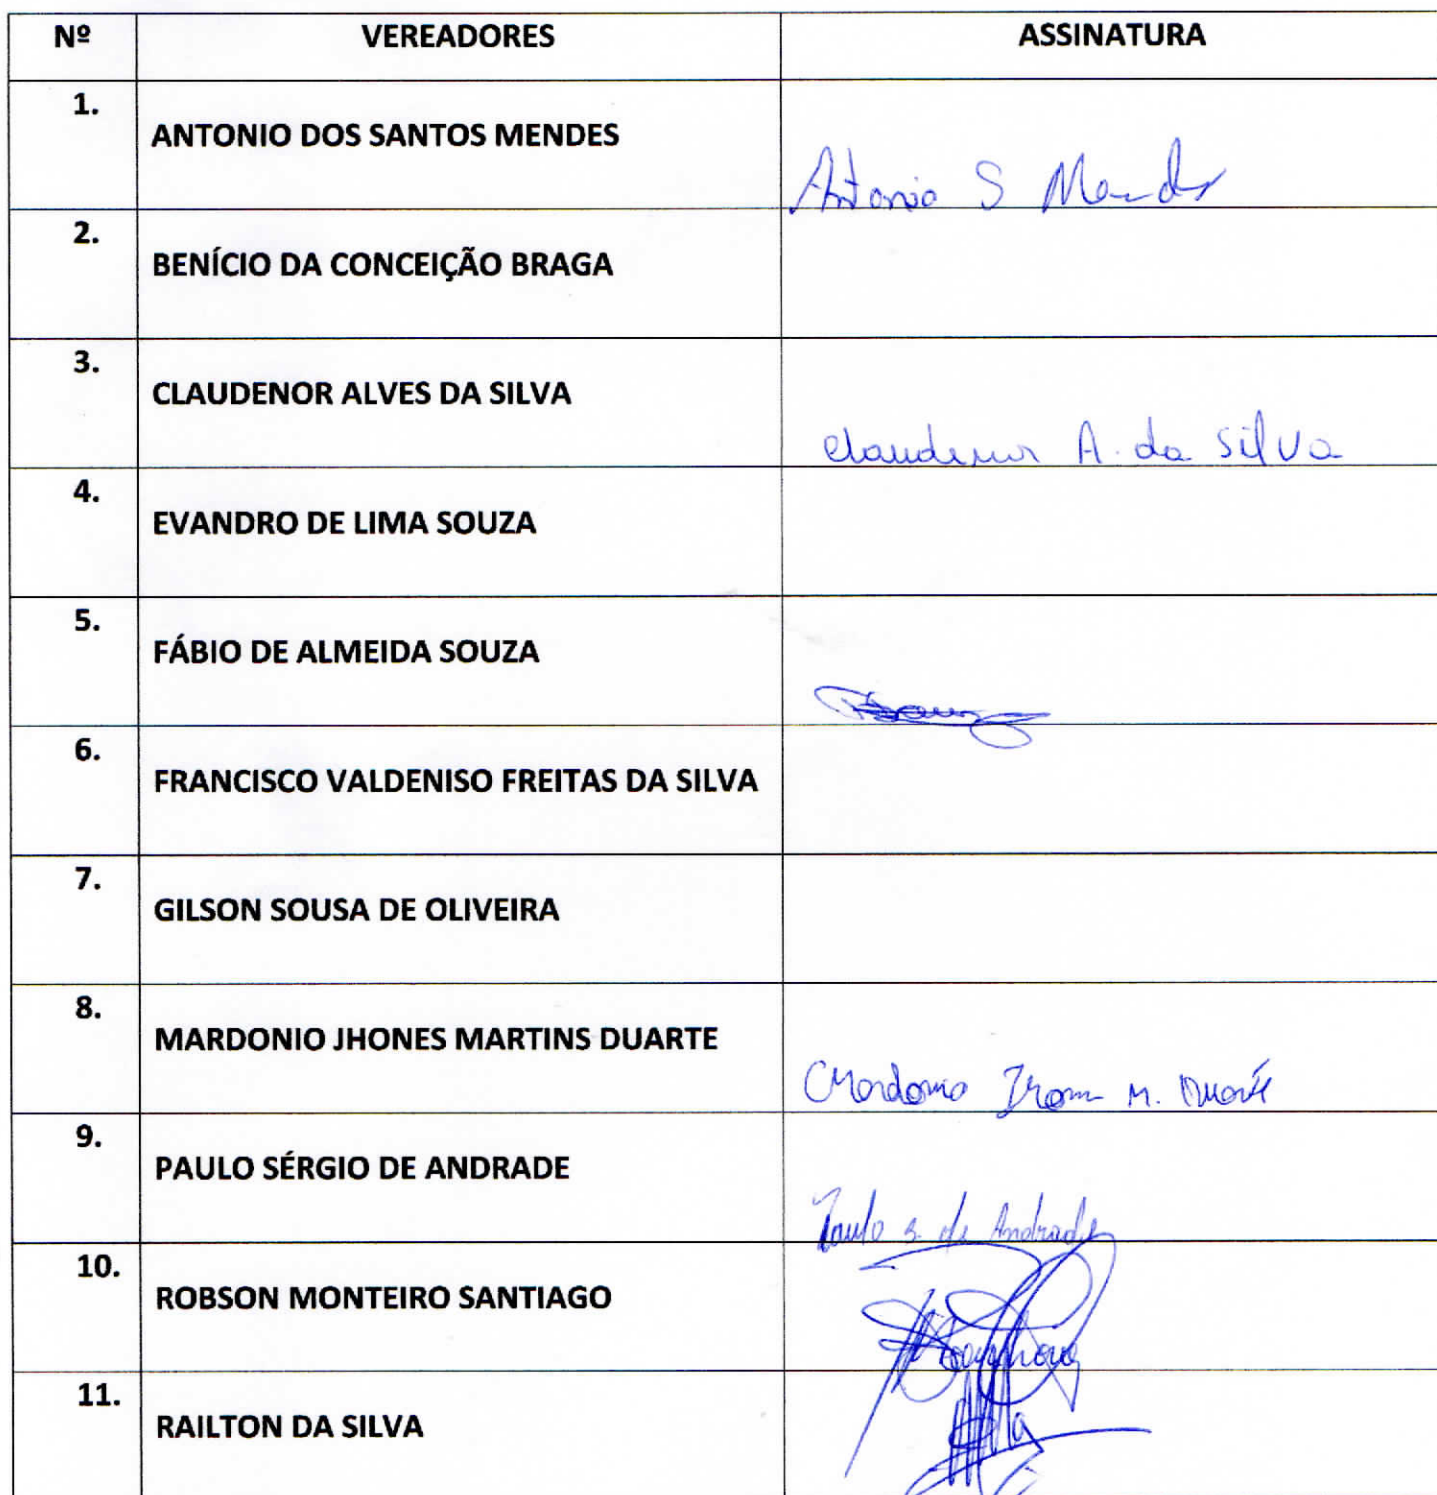 Nº VEREADORES ASSINATURA
1. ANTONIO DOS SANTOS MENDES
Antonio S Mendes
2. BENÍCIO DA CONCEIÇÃO BRAGA
3. CLAUDENOR ALVES DA SILVA
Claudenor A. da Silva
4. EVANDRO DE LIMA SOUZA
5. FÁBIO DE ALMEIDA SOUZA
6. FRANCISCO VALDENISO FREITAS DA SILVA
7. GILSON SOUSA DE OLIVEIRA
8. MARDONIO JHONES MARTINS DUARTE
Mardonio M. Duarte
9. PAULO SÉRGIO DE ANDRADE
Paulo S. de Andrade
10. ROBSON MONTEIRO SANTIAGO
11. RAILTON DA SILVA